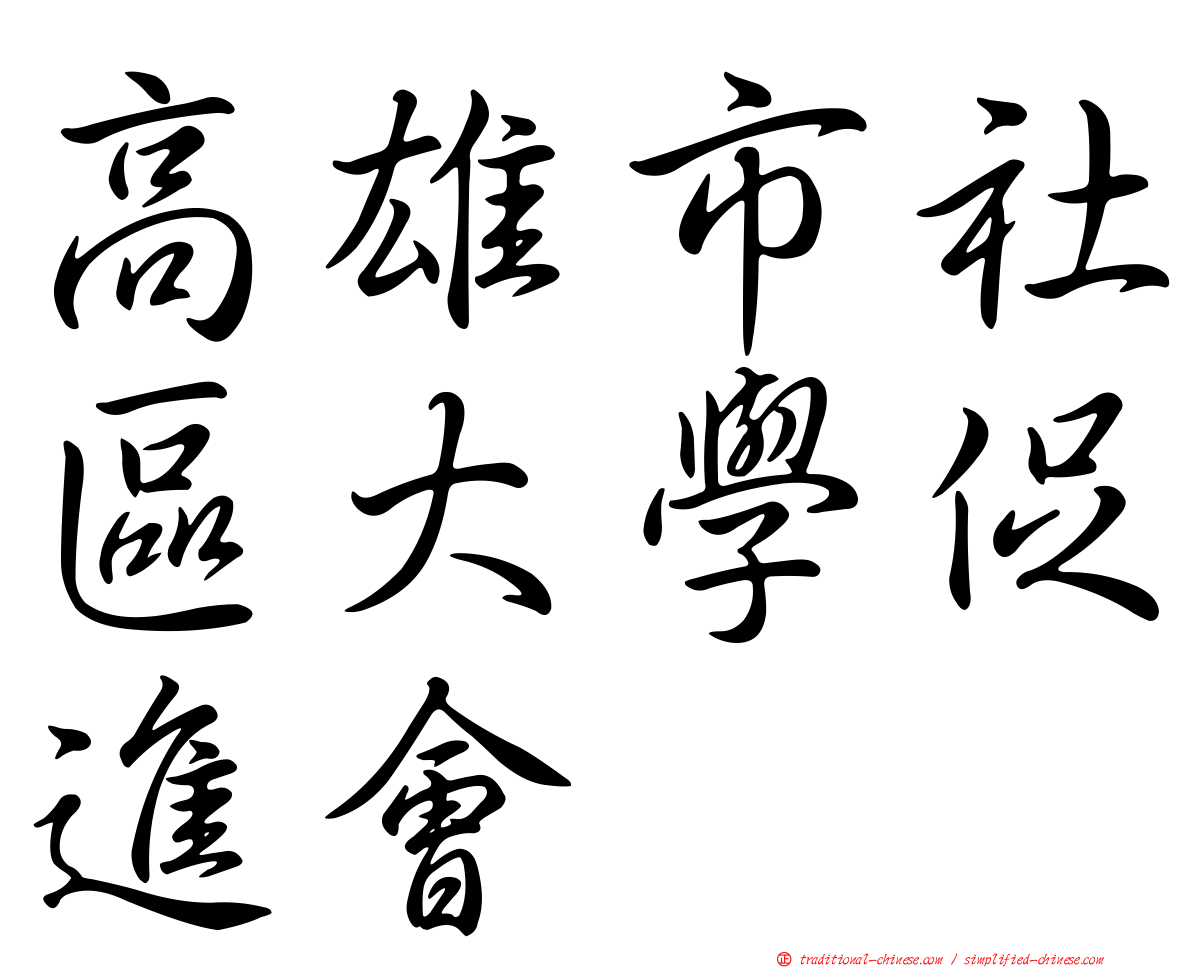 高雄市社
區大學促
進會
正 traditional-chinese.com / simplified-chinese.com